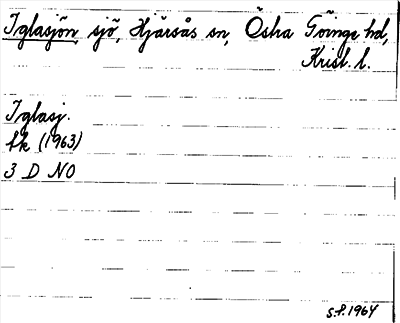 Iglasjön, sjö, Hjärsås sn, Östra Göinge hd,
Krist. l.
Iglasj.
Ek (1963)
3 D NO
S.P. 1964